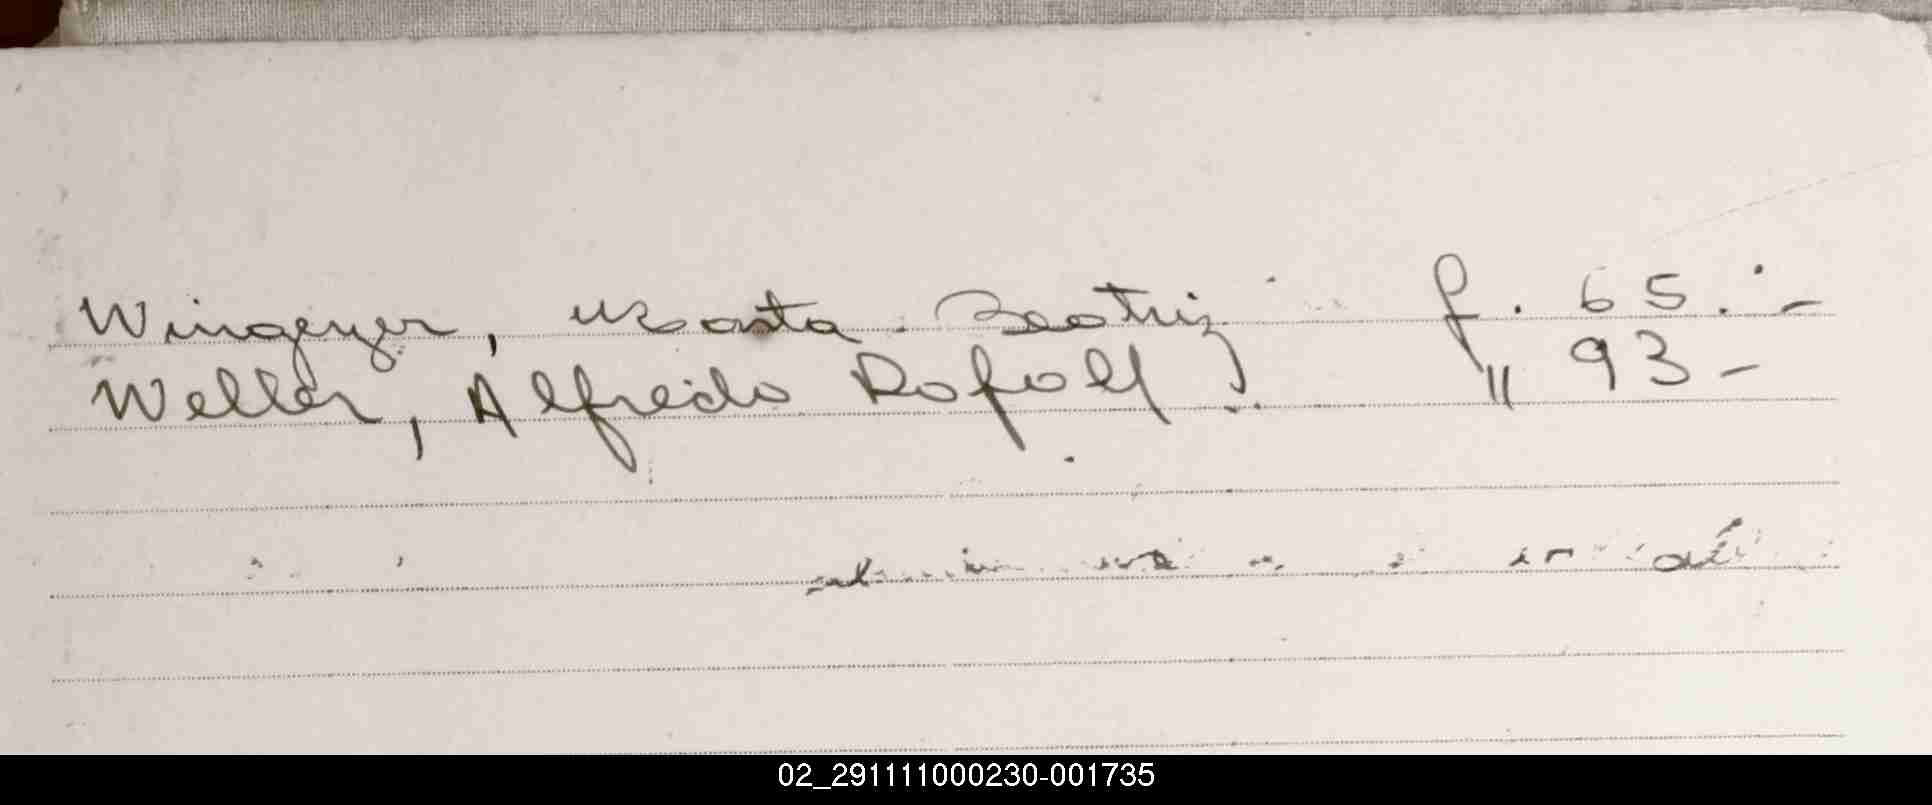 Wingeyer, Marta Beatriz f. 65.-
Weller, Alfredo Rofolf. " 93-
02_291111000230-001735